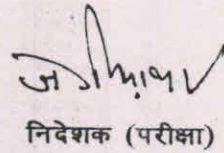 निदेशक (परीक्षा)